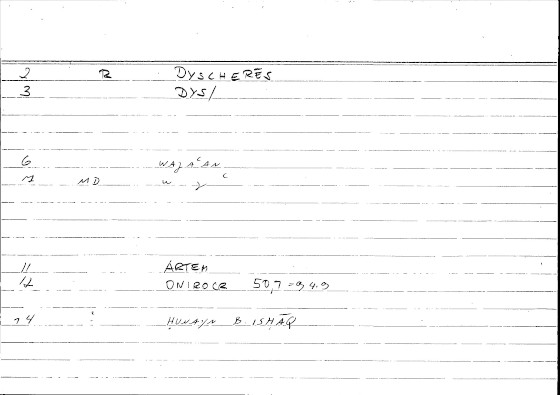 2 R DYSCHERĒS
3 DYS/
6 WAJAʿAN
7 MD W J ʿ
11 ARTEM
12 ONIROCR 50,7 = 94.9
14 ḤUNAYN B. ISḤĀQ